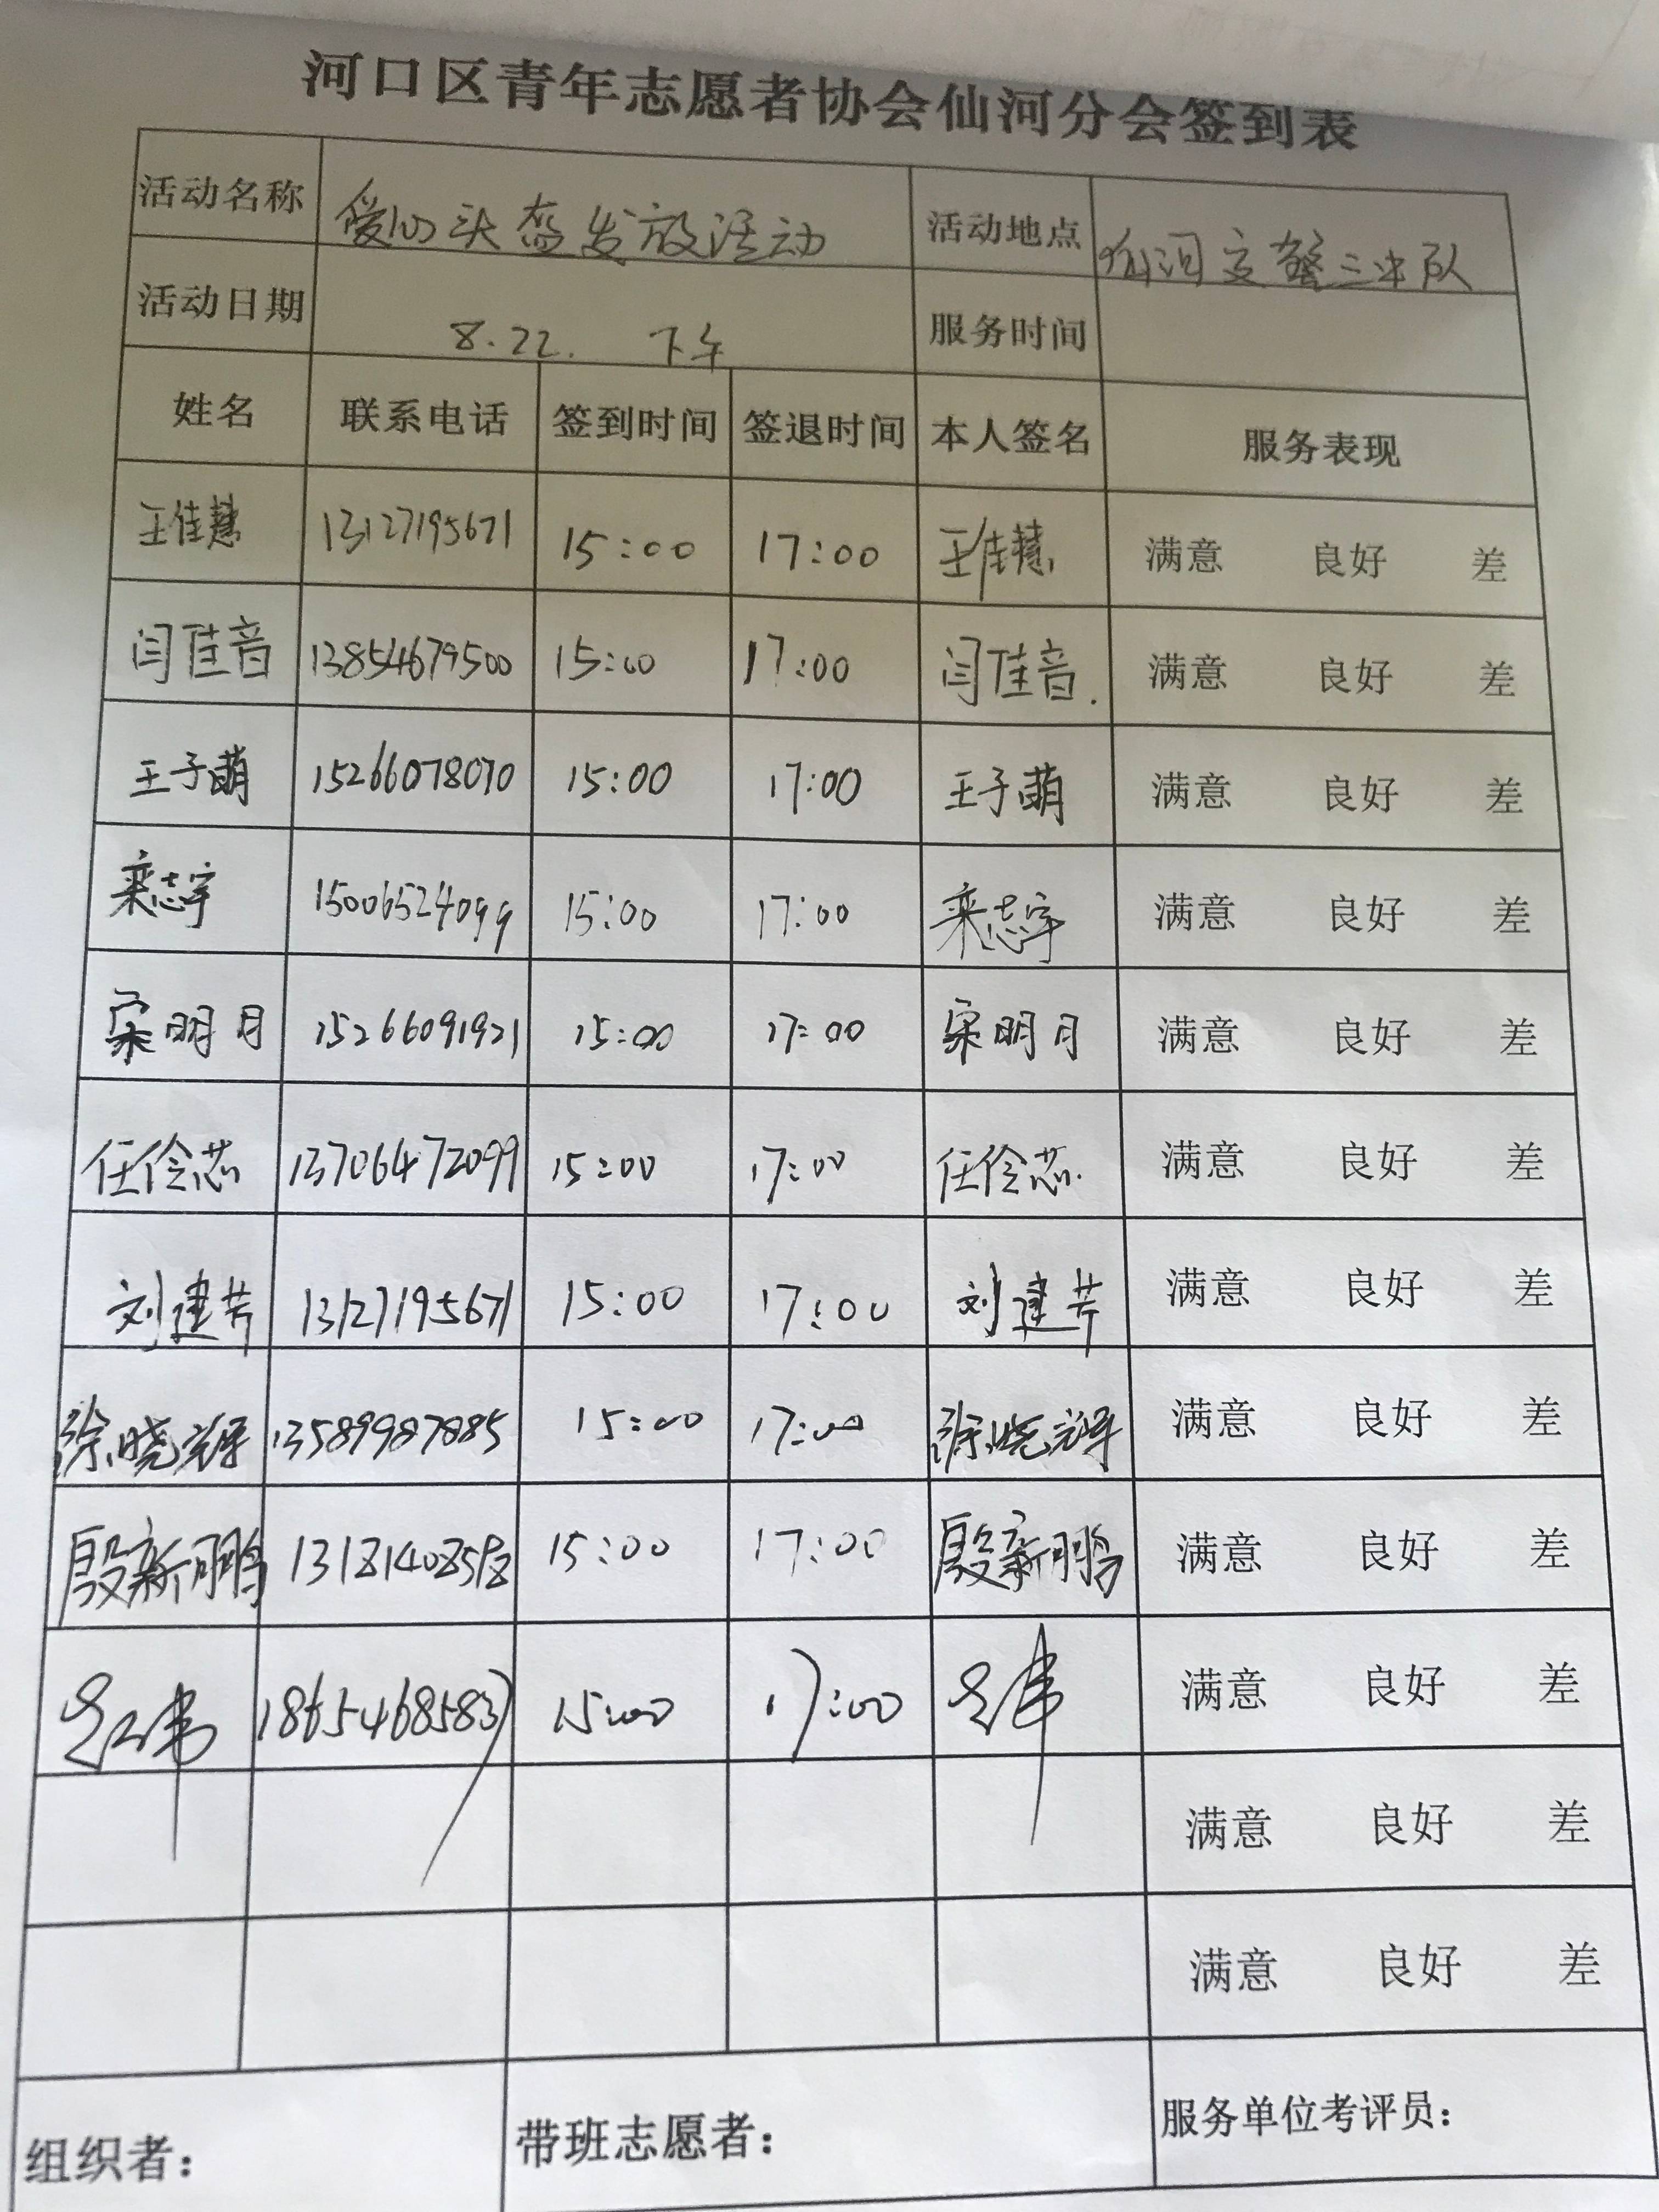 河口区青年志愿者协会仙河分会签到表
活动名称 爱心头盔发放活动 活动地点 仙河交警三中队
活动日期 8.22. 下午 服务时间
姓名 联系电话 签到时间 签退时间 本人签名 服务表现
王佳慧 13127195671 15:00 17:00 王佳慧 满意 良好 差
闫佳音 13854679500 15:00 17:00 闫佳音. 满意 良好 差
王子萌 15266078070 15:00 17:00 王子萌 满意 良好 差
栾志宇 15006524099 15:00 17:00 栾志宇 满意 良好 差
宋明月 15266091921 15:00 17:00 宋明月 满意 良好 差
任伶芯 13706472099 15:00 17:00 任伶芯. 满意 良好 差
刘建芳 13127195671 15:00 17:00 刘建芳 满意 良好 差
徐晓辉 13589987885 15:00 17:00 徐晓辉 满意 良好 差
殷新鹏 15:00 17:00 殷新鹏 满意 良好 差
18654685837 15:00 17:00 满意 良好 差
满意 良好 差
满意 良好 差
组织者： 带班志愿者： 服务单位考评员：